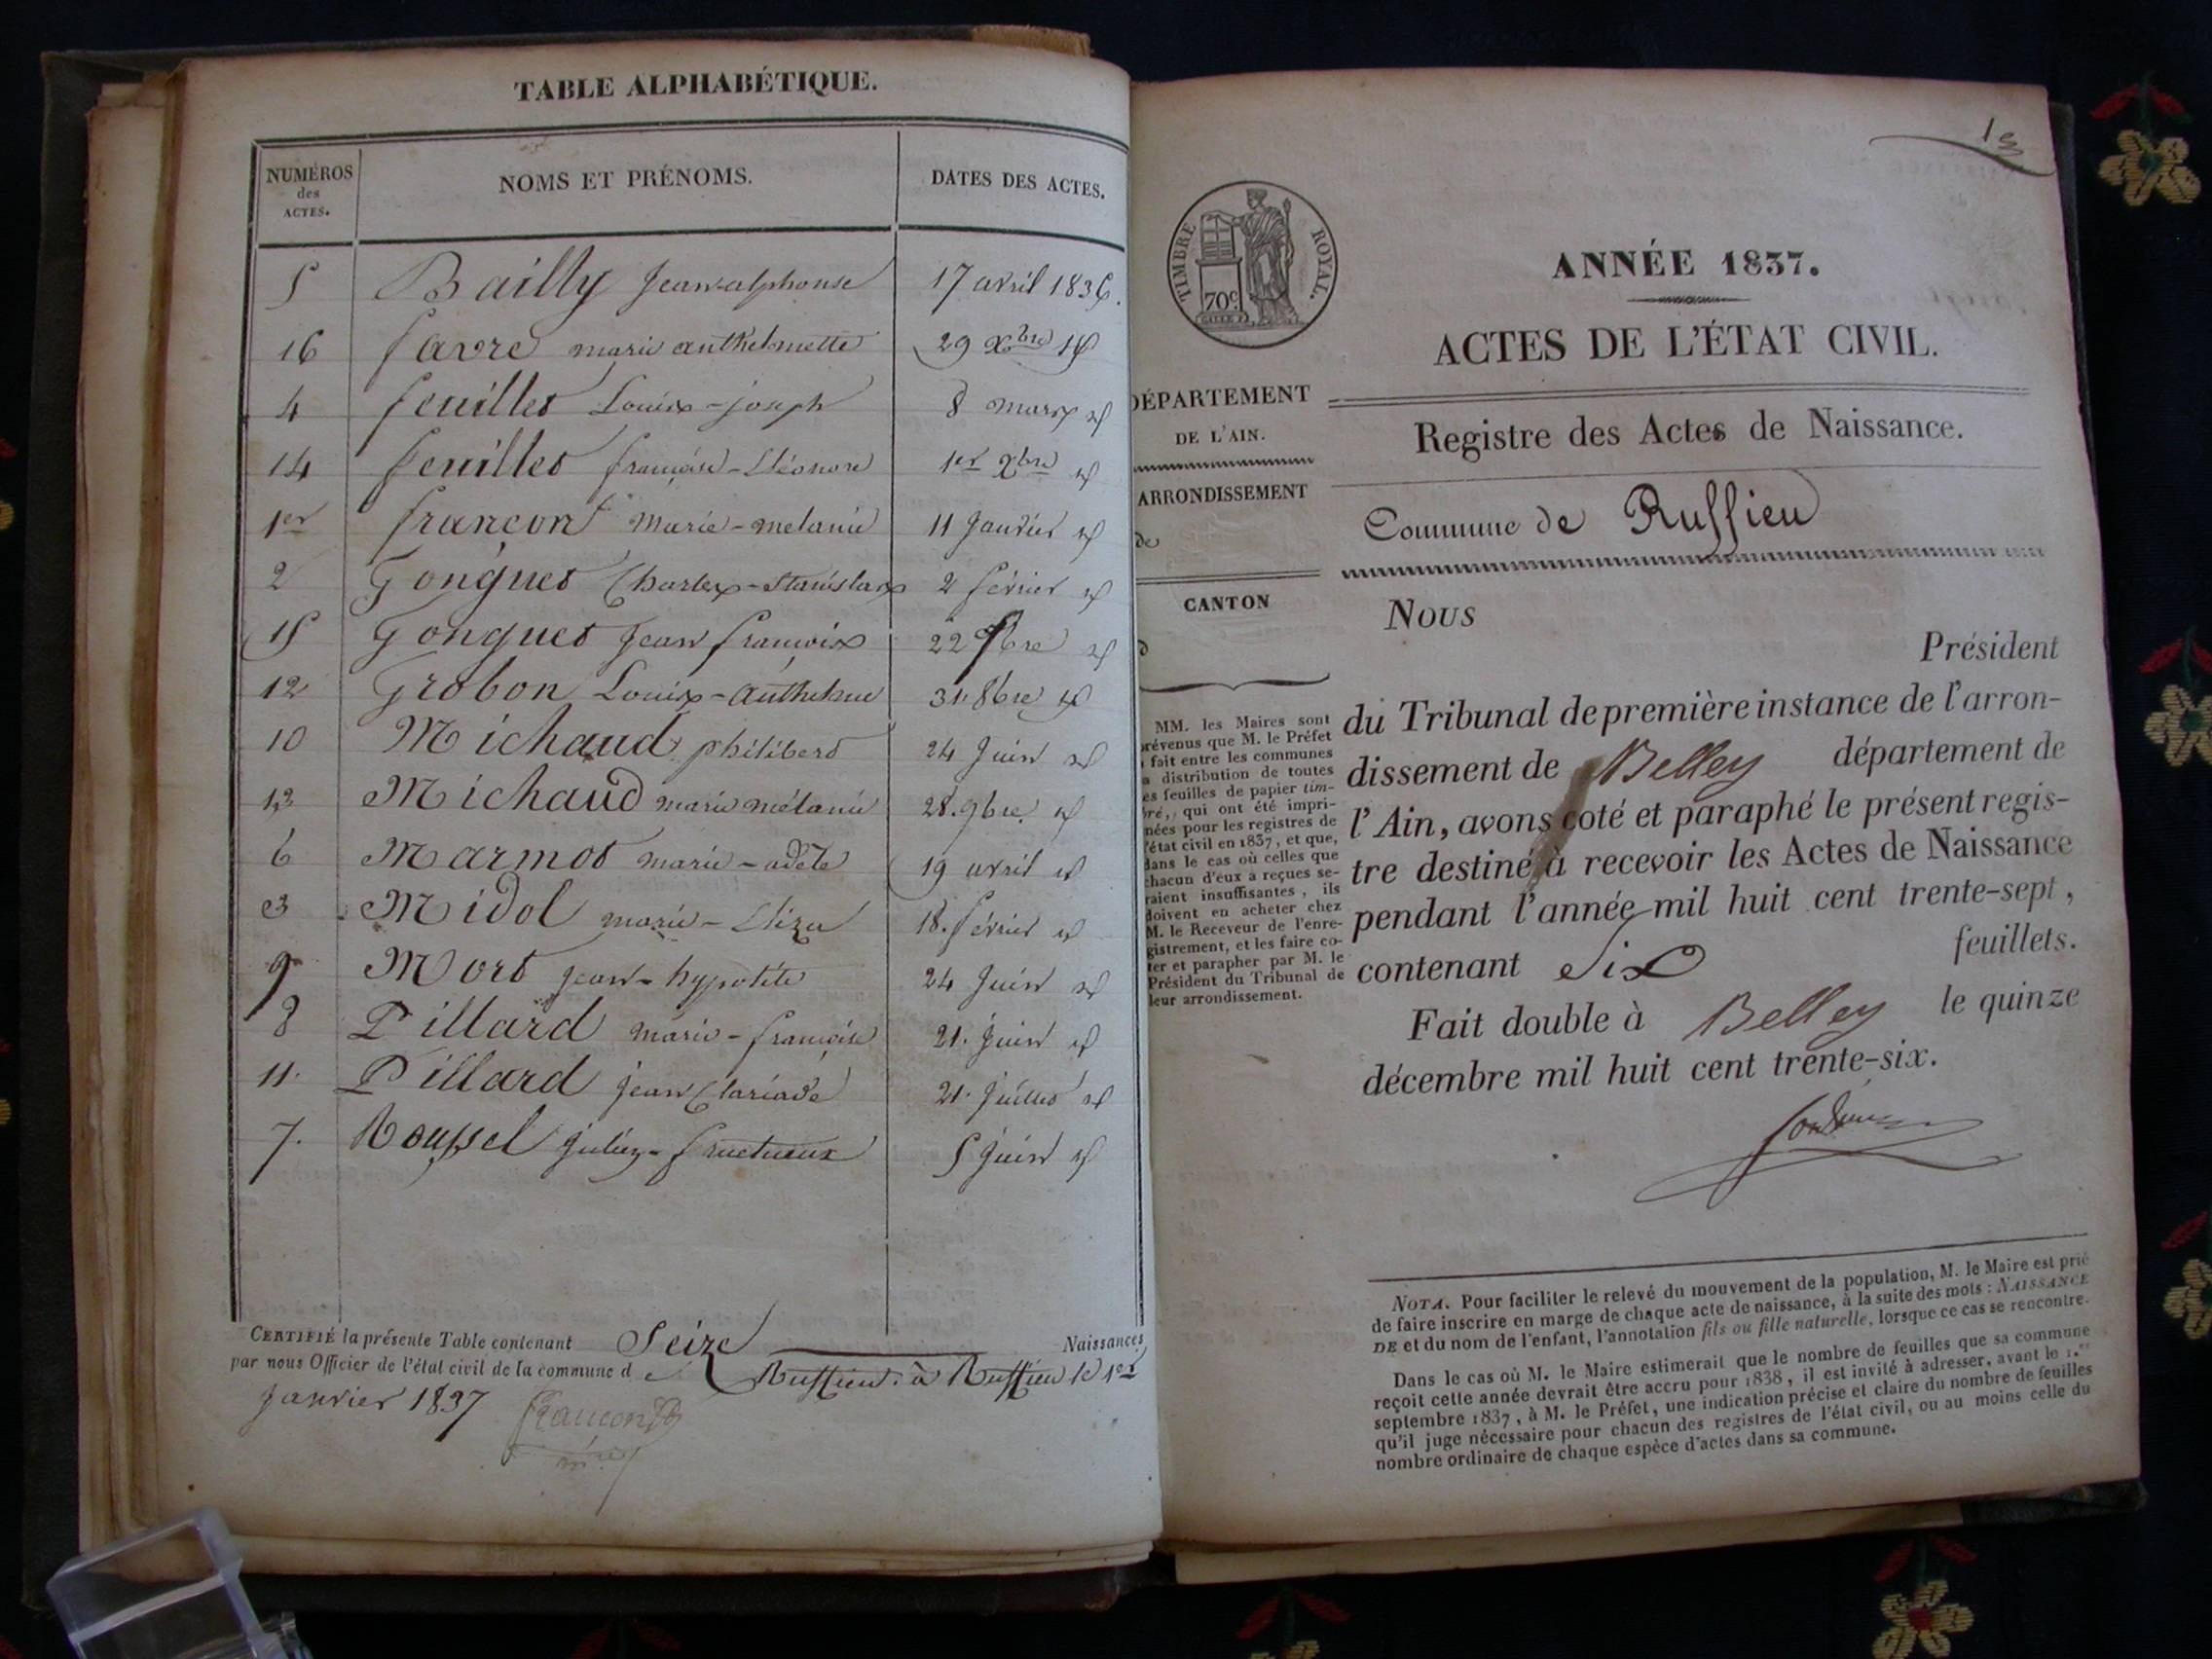 TABLE ALPHABÉTIQUE.
NUMÉROS des ACTES. NOMS ET PRÉNOMS. DATES DES ACTES.
5 Bailly Jean-alphonse 17 avril 1836.
16 favre marie anthelmette 29 Xbre id
4 feuillet Louis-joseph 8 mars id
14 feuillet françoise-Eléonore 1er Xbre id
1er françon marie-melanie 11 Janvier id
2 Gonguet Charles-Stanislas 2 février id
15 Gonguet Jean françois 22 Xbre id
12 Grobon Louis-anthelme 31. 8bre id
10 Michaud philibert 24 Juin id
13 Michaud marie mélanie 28. 9bre. id
6 Marmot marie-adèle 19 avril id
3 Midol marie-Eliza 18. février id
9 Mort jean-hypolite 24 Juin id
8 Pillard marie-françoise 21. Juin id
11. Pillard jean Clariade 21. Juillet id
7. Roussel Julien-fructueux 5 Juin id
CERTIFIÉ la présente Table contenant Seize Naissances
par nous Officier de l'état civil de la commune de Ruffieu. à Ruffieu le 1er
Janvier 1837
françon
1er
TIMBRE ROYAL.
70c
ANNÉE 1837.
ACTES DE L'ÉTAT CIVIL.
DÉPARTEMENT
DE L'AIN.
ARRONDISSEMENT
de
CANTON
d
MM. les Maires sont
prévenus que M. le Préfet
a fait entre les communes
la distribution de toutes
les feuilles de papier tim-
bré, qui ont été impri-
mées pour les registres de
l'état civil en 1837, et que,
dans le cas où celles que
chacun d'eux a reçues se-
raient insuffisantes, ils
doivent en acheter chez
M. le Receveur de l'enre-
gistrement, et les faire co-
ter et parapher par M. le
Président du Tribunal de
leur arrondissement.
Registre des Actes de Naissance.
Commune de Ruffieu
Nous
Président
du Tribunal de première instance de l'arron-
dissement de Belley département de
l'Ain, avons coté et paraphé le présent regis-
tre destiné à recevoir les Actes de Naissance
pendant l'année mil huit cent trente-sept,
contenant Six feuillets.
Fait double à Belley le quinze
décembre mil huit cent trente-six.
NOTA. Pour faciliter le relevé du mouvement de la population, M. le Maire est prié
de faire inscrire en marge de chaque acte de naissance, à la suite des mots : NAISSANCE
DE et du nom de l'enfant, l'annotation fils ou fille naturelle, lorsque ce cas se rencontre.
Dans le cas où M. le Maire estimerait que le nombre de feuilles que sa commune
reçoit cette année devrait être accru pour 1838, il est invité à adresser, avant le 1.er
septembre 1837, à M. le Préfet, une indication précise et claire du nombre de feuilles
qu'il juge nécessaire pour chacun des registres de l'état civil, ou au moins celle du
nombre ordinaire de chaque espèce d'actes dans sa commune.